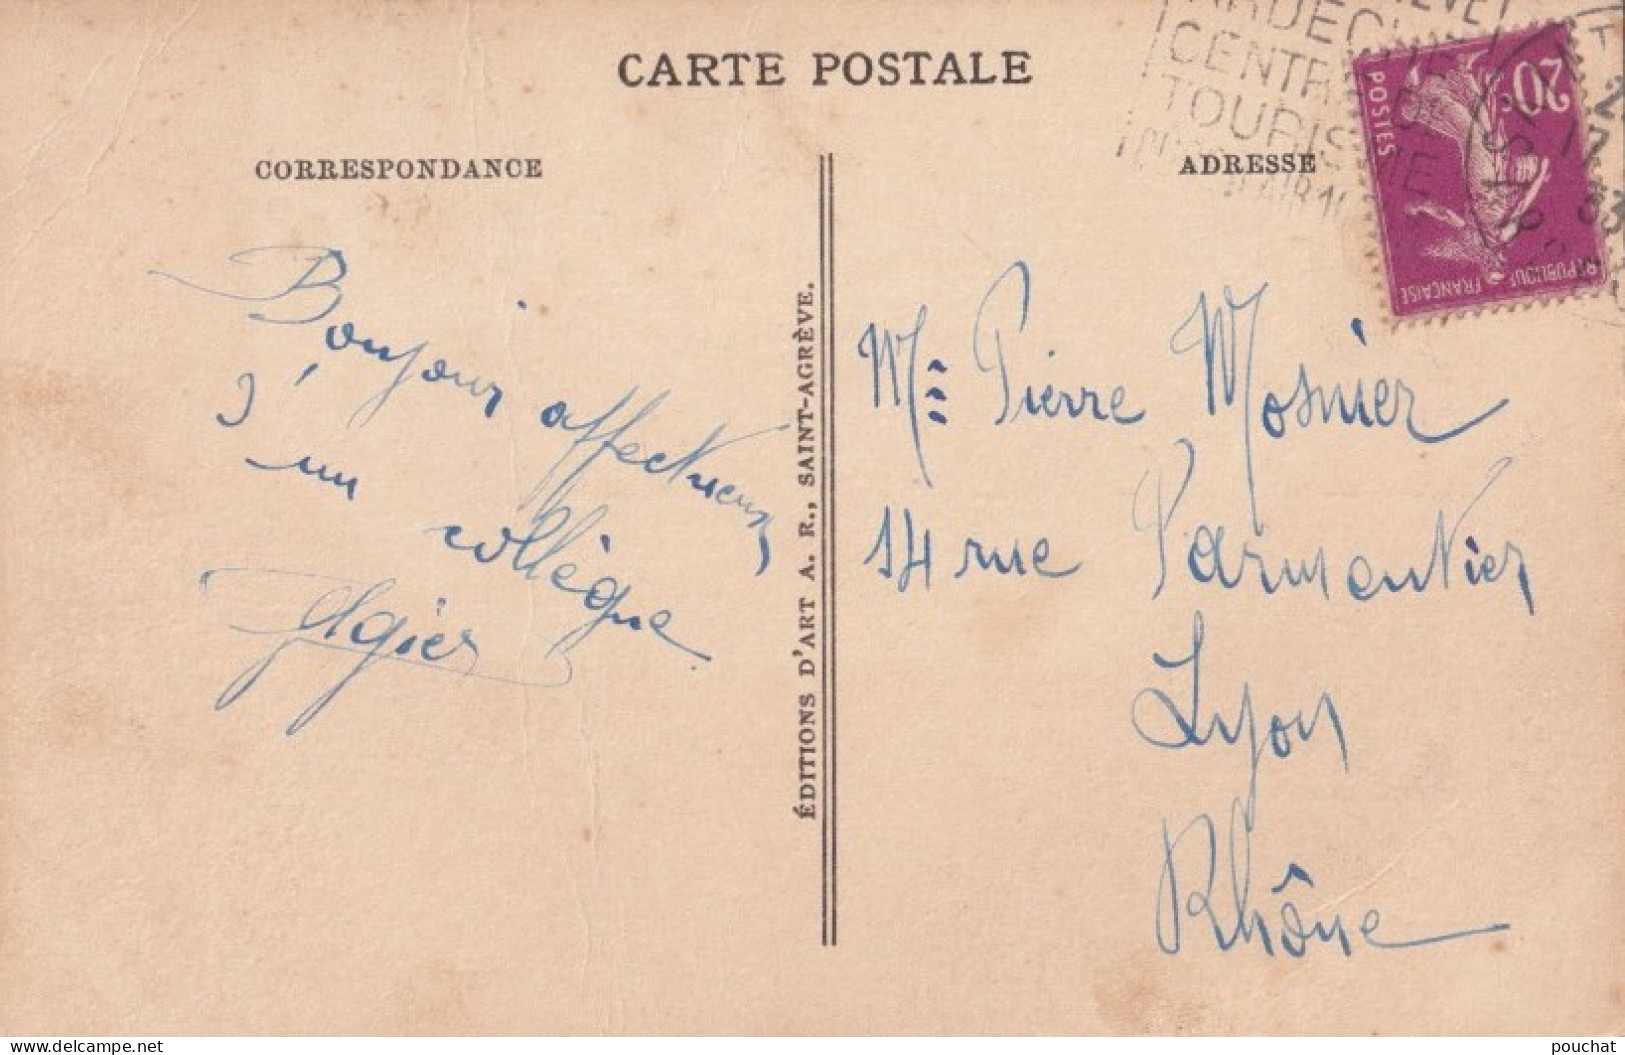 CARTE POSTALE
CORRESPONDANCE
ADRESSE
ARDECHE
CENTRE DE
TOURISME
D'AIR
20c
POSTES
REPUBLIQUE FRANÇAISE
17
33
Bonjour affectueux
d'un
collègue
ÉDITIONS D'ART A. R., SAINT-AGRÈVE.
Pierre Mosnier
14 rue Parmentier
Lyon
Rhône
pouchat
www.delcampe.net